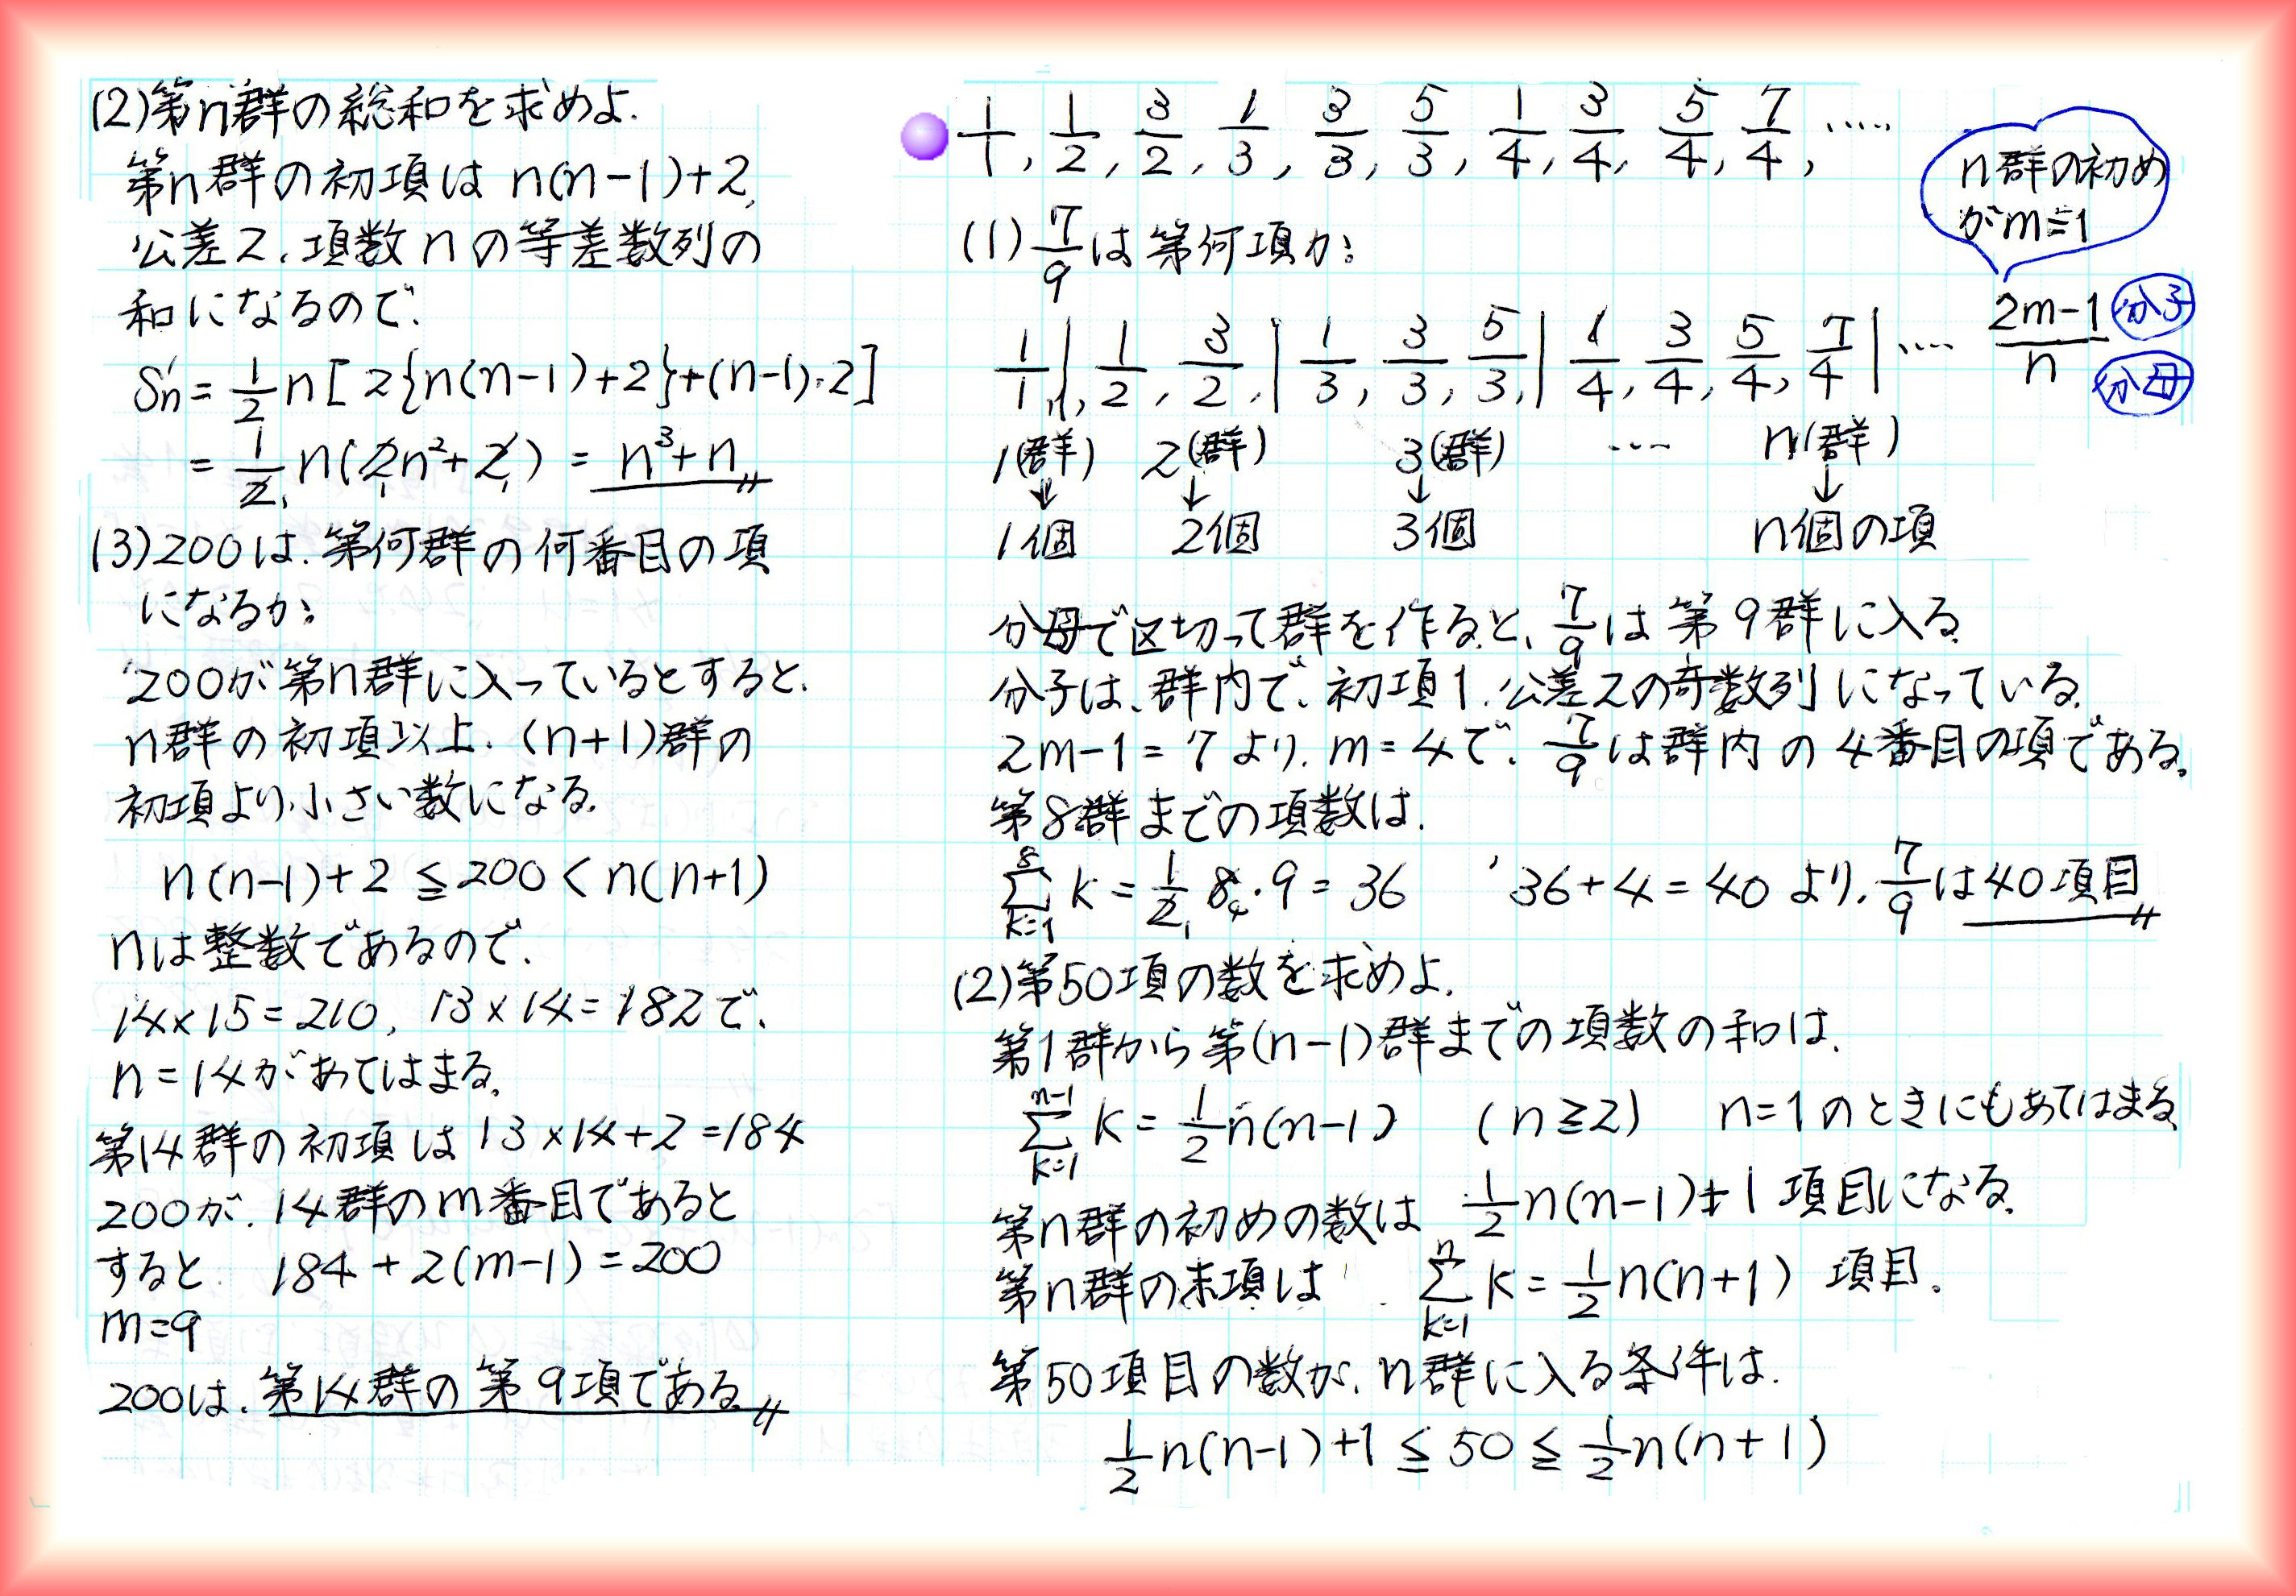 (2)第n群の総和を求めよ.
第n群の初項は n(n-1)+2,
公差2, 項数 n の等差数列の
和になるので,
Sn = 1/2 n [ 2{n(n-1)+2}+(n-1)·2]
= 1/2 n(2n²+2) = n³+n
(3)200は, 第何群の何番目の項
になるか。
200が第n群に入っているとすると,
n群の初項以上, (n+1)群の
初項より小さい数になる.
n(n-1)+2 ≦ 200 < n(n+1)
nは整数であるので,
14×15=210, 13×14=182で,
n=14があてはまる.
第14群の初項は 13×14+2=184
200が, 14群のm番目であると
すると 184+2(m-1)=200
m=9
200は, 第14群の第9項である
1/1, 1/2, 3/2, 1/3, 3/3, 5/3, 1/4, 3/4, 5/4, 7/4, ‥‥
n群の初め
がm=1
(1) 7/9 は第何項か。
1/1 | 1/2, 3/2, | 1/3, 3/3, 5/3, | 1/4, 3/4, 5/4, 7/4 | ‥‥ (2m-1)/n 分子 分母
1(群) 2(群) 3(群) ‥‥ n(群)
↓ ↓ ↓ ↓
1個 2個 3個 n個の項
分母で区切って群を作ると, 7/9 は第9群に入る.
分子は, 群内で, 初項1, 公差2の奇数列になっている.
2m-1=7より, m=4で, 7/9 は群内の4番目の項である.
第8群までの項数は,
8Σk=1 k = 1/2 8·9 = 36 36+4=40より, 7/9 は 40項目
(2)第50項の数を求めよ.
第1群から第(n-1)群までの項数の和は,
n-1Σk=1 k = 1/2 n(n-1) (n≧2) n=1のときにもあてはまる
第n群の初めの数は 1/2 n(n-1)+1 項目になる.
第n群の末項は nΣk=1 k = 1/2 n(n+1) 項目.
第50項目の数が, n群に入る条件は,
1/2 n(n-1)+1 ≦ 50 ≦ 1/2 n(n+1)